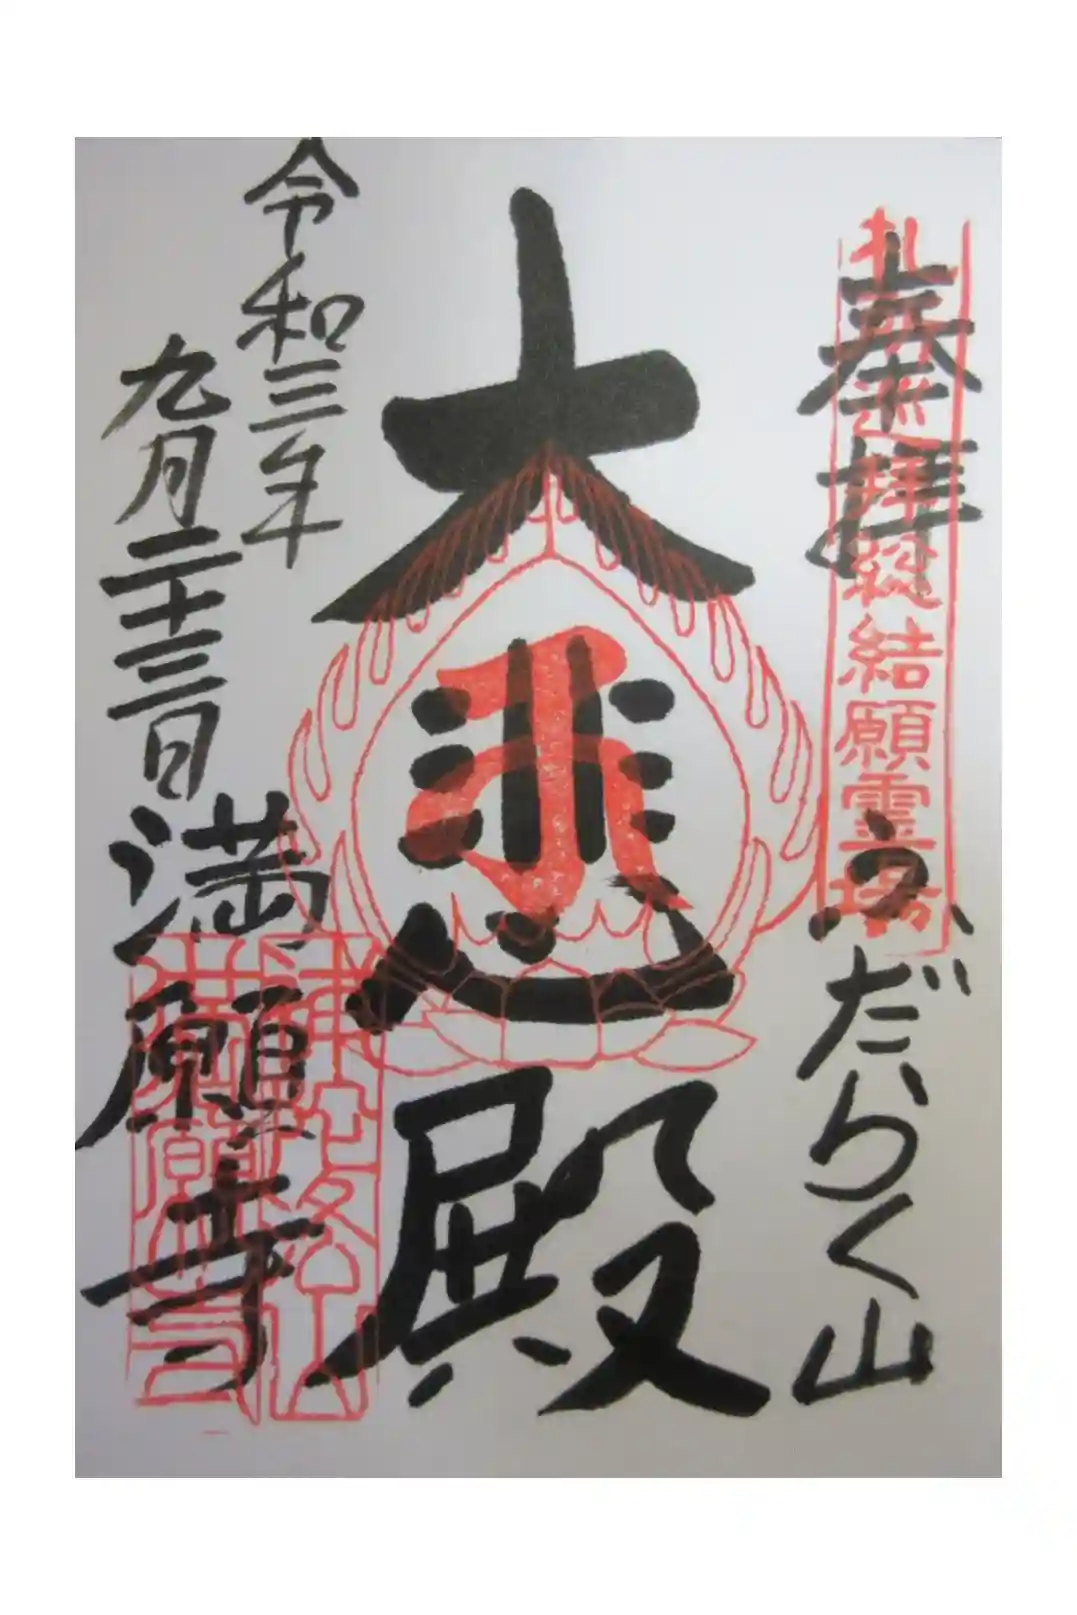 奉拝
ふだらく山
札所巡拝総結願霊場
大悲殿
令和三年
九月二十三日
満願寺
補陀洛山
満願寺